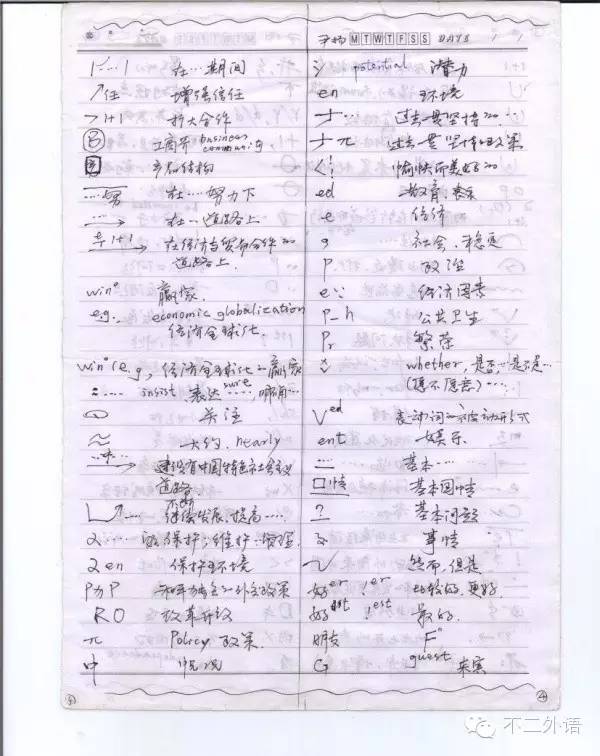 MTWTFSS DAYS
在…期间
↗任 增强信任
扩大合作
B 工商界 business community
产品结构
在…努力下
在…道路上
在经济与贸易合作的
道路上.
win° 赢家.
e.g. economic globalization
经济全球化
win°(e.g, 经济全球化的赢家
insist 表达 sure
关注
≈ 大约. nearly
建设有中国特色社会主义
道路
不断
继续发展.提高…
保护;维护
2en 保护环境
和平独立的外交政策
RO 改革开放
π Policy 政策.
中 状况
potential 潜力
en 环境
过去一贯坚持的
过去一贯坚持的政策
愉快而美好的
ed 教育.
e 经济
社会.稳定
P. 政治
e∵ 经济因素
P-h 公共卫生
Pr 繁荣
whether,是否…是不是…
(愿不愿意)…
V ed 表动词的被动形式
ent 娱乐
基本…
口情 基本国情
2 基本问题
事情
然而,但是
好er !er 比较好.更好
好est !est 最好.
朋友 F°
G guest 来宾
不二外语